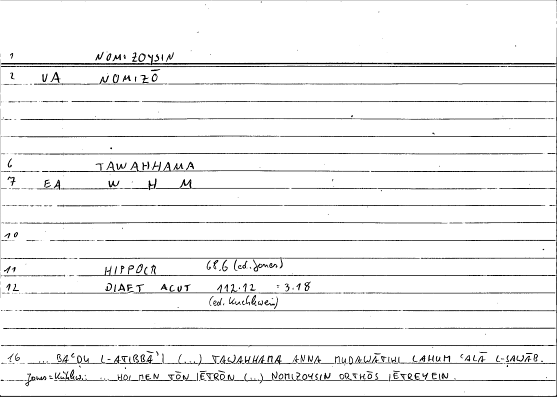 1 NOMIZOYSIN
2 VA NOMIZŌ
6 TAWAHHAMA
7 EA W H M
10
11 HIPPOCR 68.6 (ed. Jones)
12 DIAET ACUT 112.12 = 3.18
(ed. Kuehlewein)
16 ... BAʿḌU L-AṬIBBĀʾI (...) TAWAHHAMA ANNA MUDĀWĀTIHI LAHUM ʿALĀ L-ṢAWĀB.
Jones = Kühlew.: ... HOI MEN TŌN IĒTRŌN (...) NOMIZOYSIN ORTHŌS IĒTREYEIN.